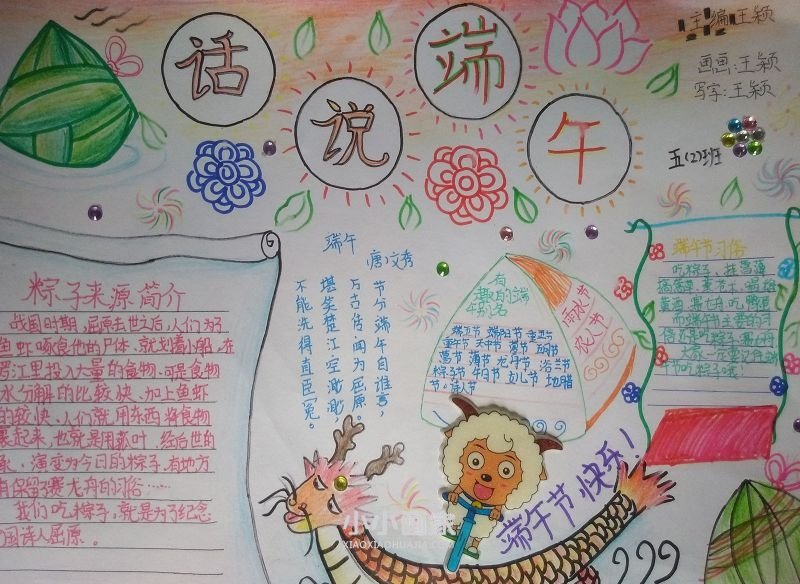 话说端午
主编:王颖
画画:王颖
写字:王颖
五(2)班
粽子来源简介
战国时期,屈原去世之后,人们为了
鱼虾啄食他的尸体,就划着小船,在
罗江里投入大量的食物,可是食物
水分解的比较快,加上鱼虾
的较快,人们就用东西将食物
裹起来,也就是用
演变为今日的粽子,有地方
有保留赛龙舟的习俗……
我们吃粽子,就是为了纪念
国诗人屈原。
端午
唐 文秀
节分端午自谁言,
万古传闻为屈原。
堪笑楚江空渺渺,
不能洗得直臣冤。
有
趣的端
午别名
端五节 端阳节 重五节
重午节 天中节 夏节 五月节
菖节 蒲节 龙舟节 浴兰节
粽子节 午日节 女儿节 地腊
节 诗人节
端午节习俗
吃粽子,挂菖蒲
端午节快乐!
小小画家
XIAOXIAOHUAJIA.COM